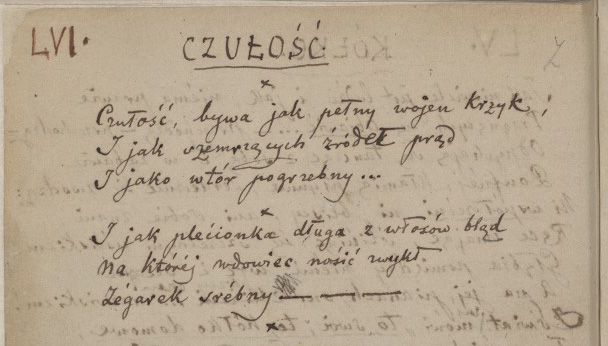 LVI.
CZUŁOŚĆ
Czułość, bywa jak pełny wojen krzyk;
I jak szemrzących źródeł prąd
I jako wtór pogrzebny...
I jak plecionka długa z włosów bląd
Na któréj wdowiec nosić zwykł
Zegarek srébny —